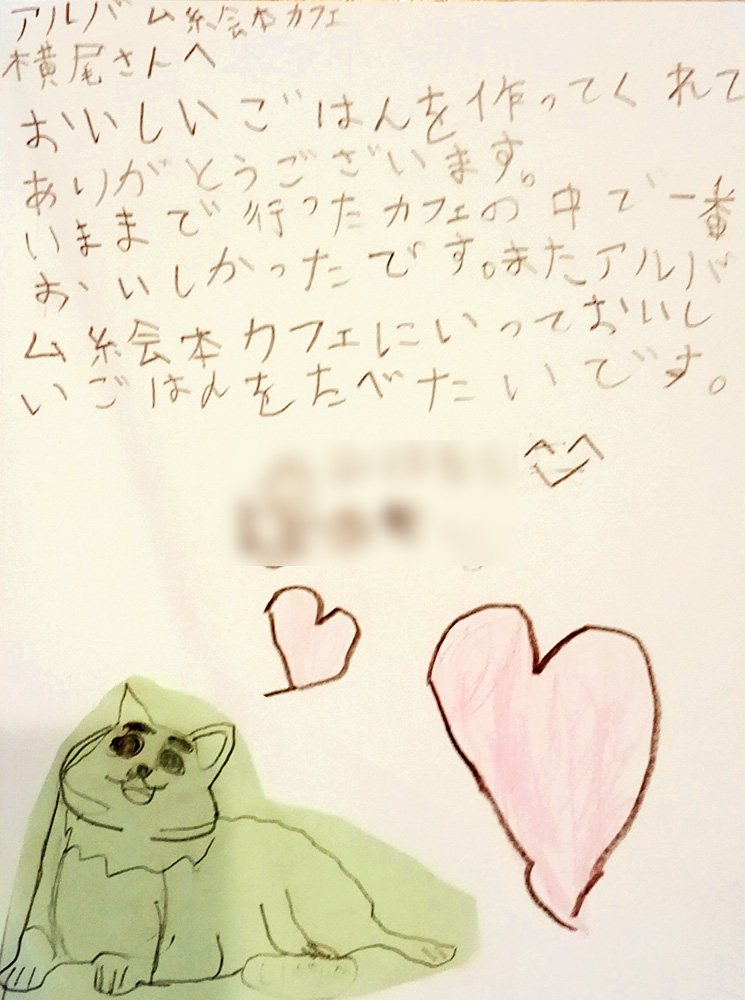 アルバム絵本カフェ
横尾さんへ
おいしいごはんを作ってくれて
ありがとうございます。
いままで行ったカフェの中で一番
おいしかったです。またアルバ
ム絵本カフェにいっておいし
いごはんをたべたいです。